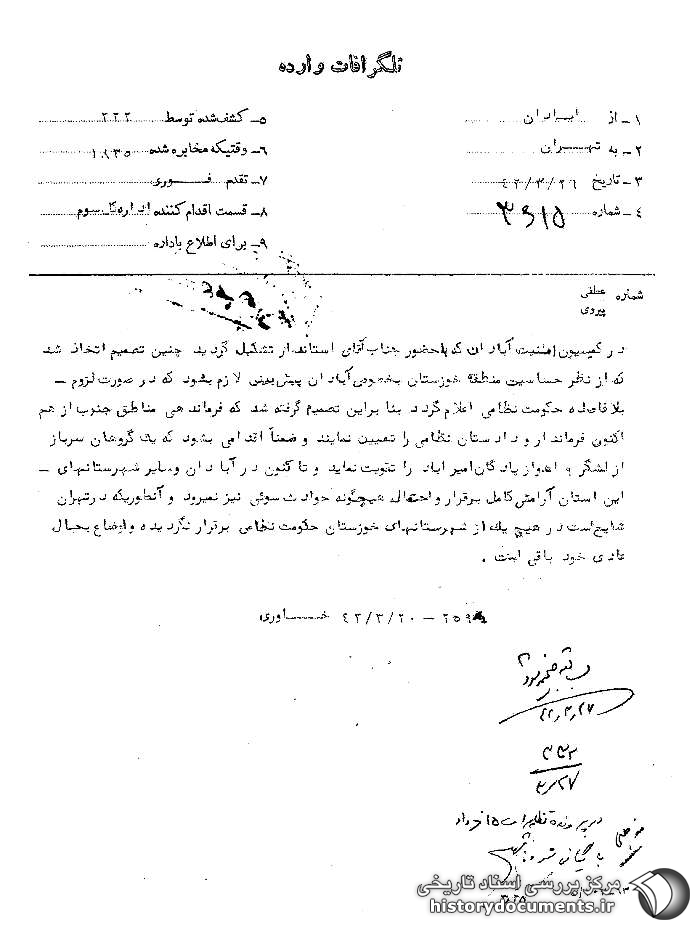 تلگرافات وارده
۱ـ از آبادان
۲ـ به تهران
۳ـ تاریخ ۴۲/۳/۲۶
۴ـ شماره ۳۶۱۵
۵ـ کشف شده توسط ۲۲۲
۶ـ وقتیکه مخابره شده ۱۸۳۵
۷ـ تقدم فوری
۸ـ قسمت اقدام کننده اداره کل سوم
۹ـ برای اطلاع باداره
شماره عطفی
پیروی
در کمیسیون امنیت آبادان که با حضور جناب آقای استاندار تشکیل گردید چنین تصمیم اتخاذ شد
که از نظر حساسیت منطقه خوزستان بخصوص آبادان پیش بینی لازم بشود که در صورت لزوم ـ
بلافاصله حکومت نظامی اعلام گردد بنا براین تصمیم گرفته شد که فرماندهی مناطق جنوب از هم
اکنون فرماندار و دادستان نظامی را تعیین نمایند و ضمناً اقدامی بشود که یک گروهان سرباز
از لشگر ۰ اهواز پادگان امیرآباد را تقویت نماید و تا کنون در آبادان و سایر شهرستانهای ـ
این استان آرامش کامل برقرار و احتمال هیچگونه حوادث سوئی نیز نمیرود و آنطوریکه در تهران
شایع است در هیچ یک از شهرستانهای خوزستان حکومت نظامی برقرار نگردیده و اوضاع بحال
عادی خود باقی است .
۲۵۹ – ۴۲/۳/۲۰ خاوری
بسابقه ضمیمه شود
۴۲,۳,۲۷
۳۳۲
۳/۲۷
در پرونده تظاهرات ۱۵ خرداد
بایگانی شود
مرکز بررسی اسناد تاریخی
historydocuments.ir